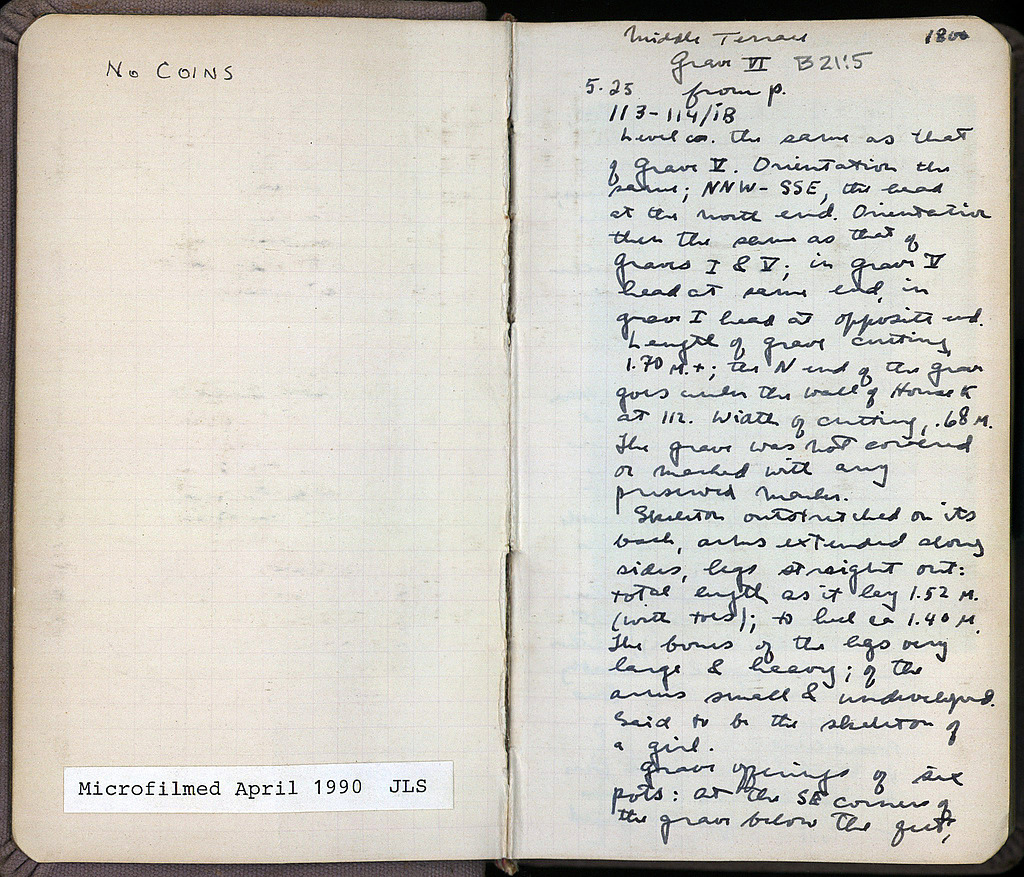 No COINS
Microfilmed April 1990 JLS
Middle Terrace 1800
Grave VI B21:5
5.25 from p.
113-114/iB
Level ca. the same as that
of Grave V. Orientation the
same; NNW-SSE, the head
at the north end. Orientation
then the same as that of
graves I & V; in grave V
head at same end, in
grave I head at opposite end.
Length of grave cutting,
1.70 M.+; the N end of the grave
goes under the wall of House K
at 112. Width of cutting, .68 M.
The grave was not covered
or marked with any
preserved marker.
Skeleton outstretched on its
back, arms extended along
sides, legs straight out:
total length as it lay 1.52 M.
(with toes); to heel ca 1.40 M.
The bones of the legs very
large & heavy; of the
arms small & undeveloped.
Said to be the skeleton of
a girl.
Grave offerings of six
pots: at the SE corner of
the grave below the feet,